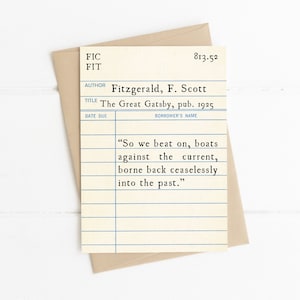 FIC 813.52
FIT
AUTHOR Fitzgerald, F. Scott
TITLE The Great Gatsby, pub. 1925
DATE DUE BORROWER'S NAME
“So we beat on, boats
against the current,
borne back ceaselessly
into the past.”